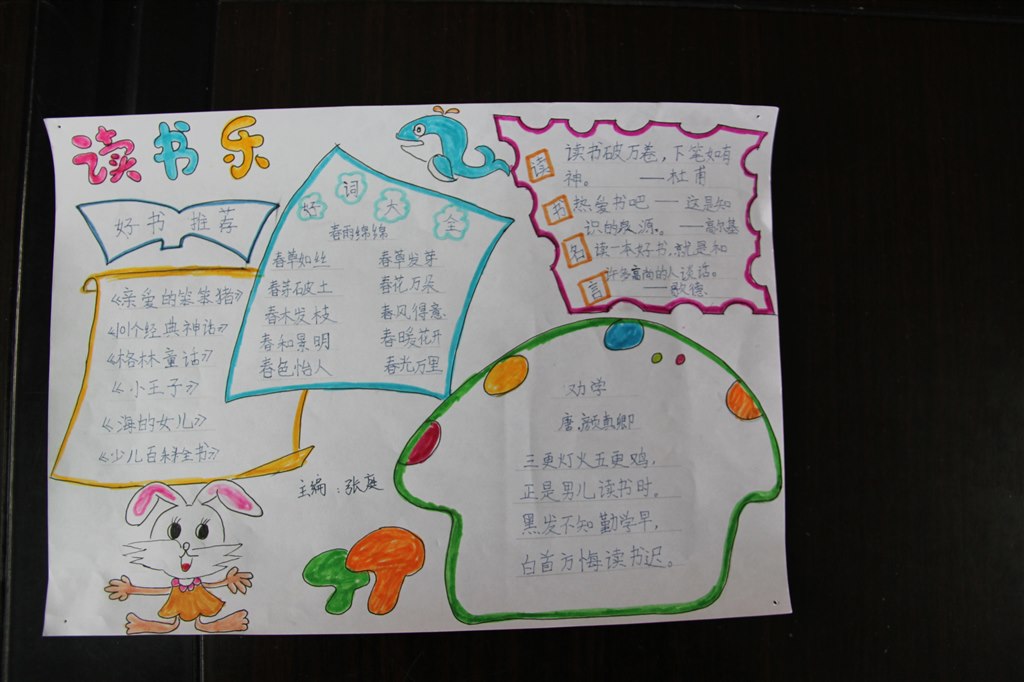 读书乐
好书推荐
《亲爱的笨笨猪》
《101个经典神话》
《格林童话》
《小王子》
《海的女儿》
《少儿百科全书》
好词大全
春雨绵绵
春草如丝 春草发芽
春芽破土 春花万朵
春木发枝 春风得意
春和景明 春暖花开
春色怡人 春光万里
读书名言
读书破万卷，下笔如有
神。 ——杜甫
热爱书吧——这是知
识的泉源。——高尔基
读一本好书，就是和
许多高尚的人谈话。
——歌德
劝学
唐.颜真卿
三更灯火五更鸡，
正是男儿读书时。
黑发不知勤学早，
白首方悔读书迟。
主编：张庭